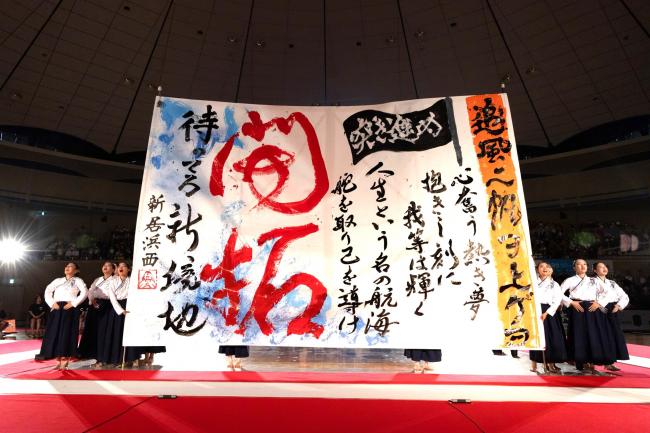 追風ニ帆ヲ上ゲヨ
心奮う熱き夢
抱きし顔に
我等は輝く
突き進め
人生という名の航海
舵を取り己を導け
開拓
待ってろ新境地
新居浜西